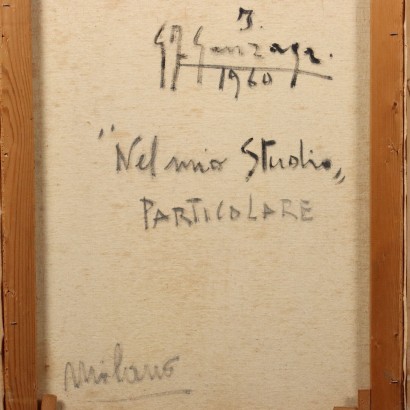 J.
G.F. Gonzaga.
1960
"Nel mio Studio„
PARTICOLARE
Milano